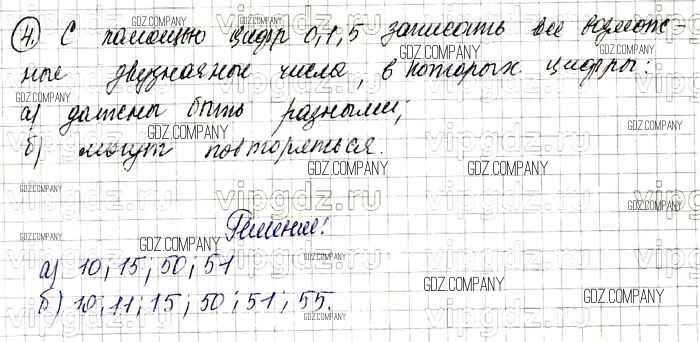 4. С помощью цифр 0, 1, 5 записать все возмож
ные двузначные числа, в которых цифры:
а) должны быть разными;
б) могут повторяться.
Решение:
а) 10; 15; 50; 51
б) 10; 11; 15; 50; 51; 55.
GDZ.COMPANY
vipgdz.ru